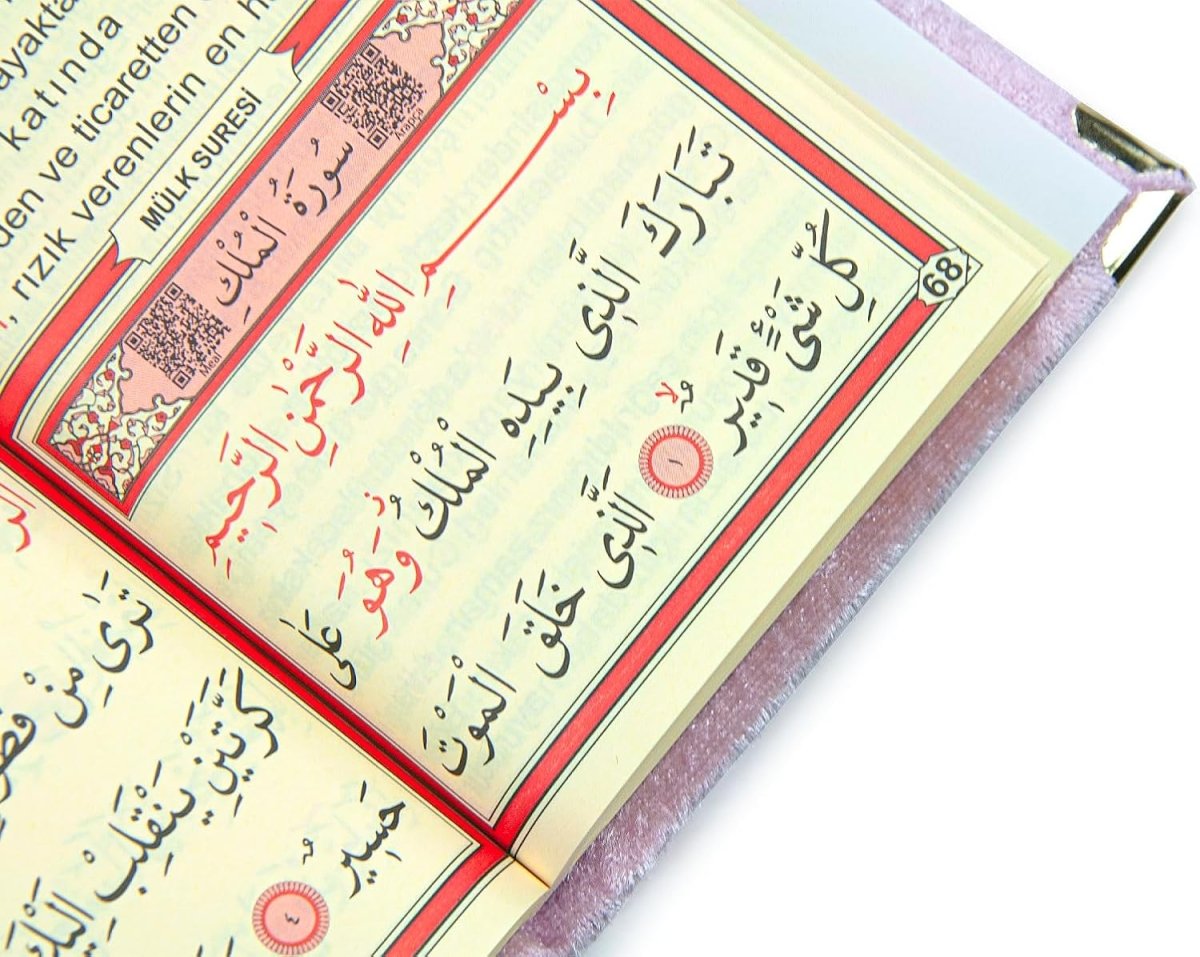 katında
ve ticaretten
rızık verenlerin en
MÜLK SURESİ
Arapça
سُورَةُ الْمُلْكِ
Meal
بِسْمِ اللّٰهِ الرَّحْمٰنِ الرَّحِيمِ
تَبَارَكَ الَّذِى بِيَدِهِ الْمُلْكُ وَهُوَ عَلَى
كُلِّ شَىْءٍ قَدِيرٌ ١ اَلَّذِى خَلَقَ الْمَوْتَ
68
تَرٰى مِنْ
كَرَّتَيْنِ يَنْقَلِبْ اِلَيْكَ
حَسِيرٌ ٤